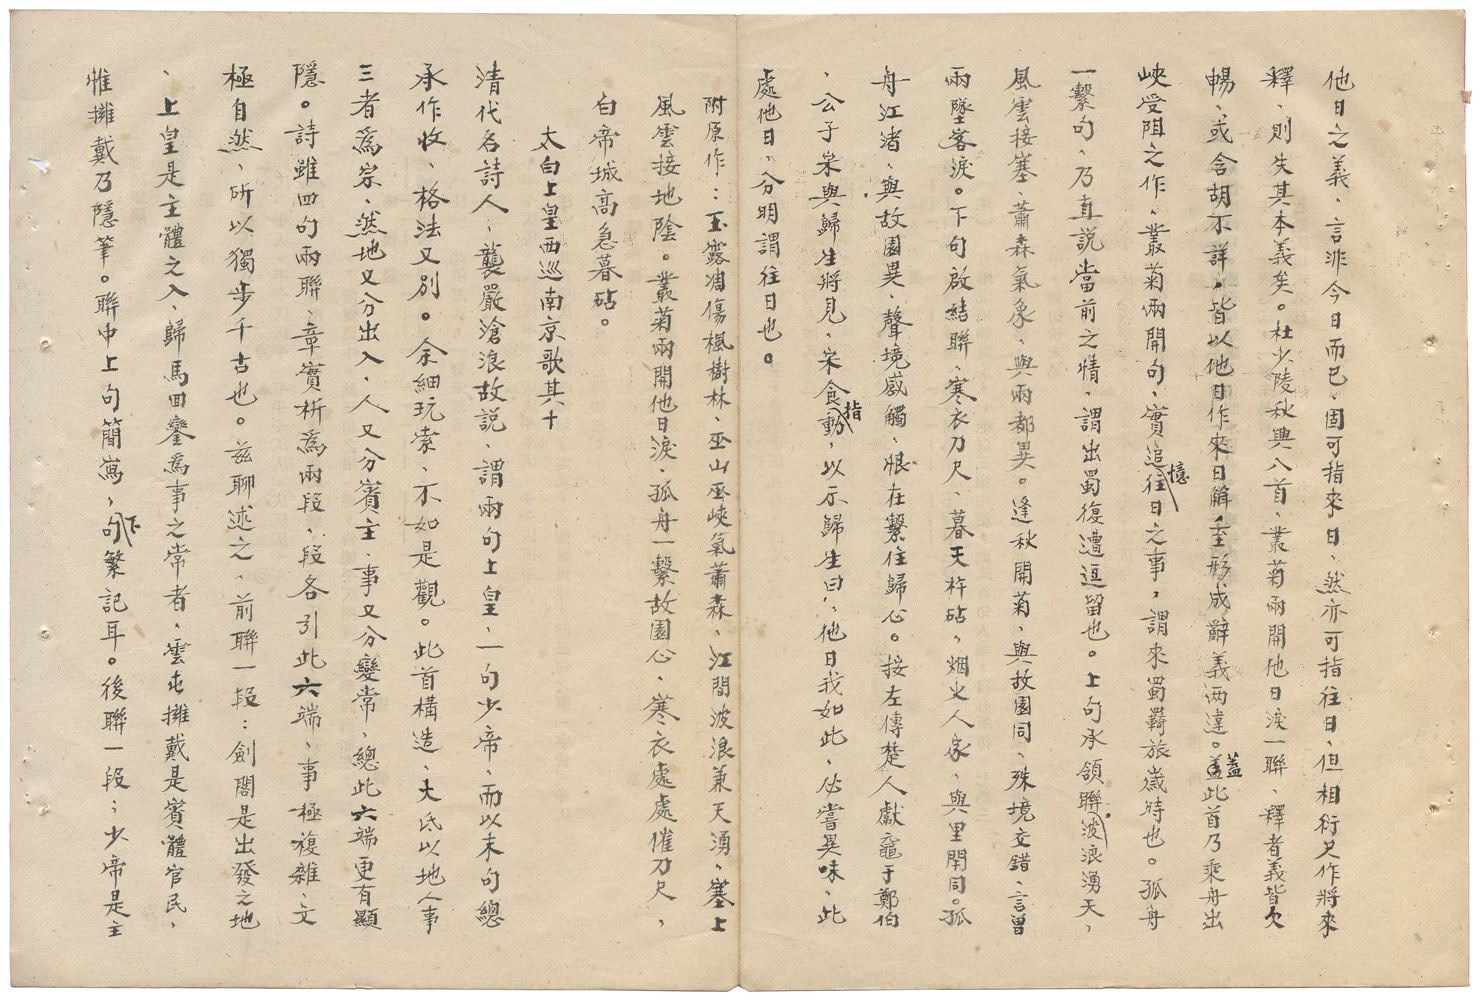 他日之義、言非今日而已、固可指來日、然亦可指往日、但相衍只作將來
釋、則失其本義矣。杜少陵秋興八首、叢菊兩開他日淚一聯、釋者義皆欠
暢、或含胡不詳。皆以他日作來日解、至形成辭義两違。蓋此首乃乘舟出
峽受阻之作、叢菊兩開句、實追憶往日之事，謂來蜀羇旅歲時也。孤舟
一繫句、乃直説當前之情、謂出蜀復遭逗留也。上句承領聯波浪湧天，
風雲接塞、蕭森氣象、與兩都異。逢秋開菊、與故園同、殊境交錯、言曾
兩墜客淚。下句啟結聯、寒衣刀尺、暮天杵砧，烟火人家、與里閈同。孤
舟江渚、與故園異、聲境感觸、恨在繫住歸心。按左傳楚人獻黿于鄭伯
、公子宋與歸生將見、宋食指動，以示歸生曰：、他日我如此、必嘗異味、此
處他日、分明謂往日也。
附原作：玉露凋傷楓樹林、巫山巫峽氣蕭森、江間波浪兼天湧、塞上
風雲接地陰。叢菊兩開他日淚、孤舟一繫故園心、寒衣處處催刀尺，
白帝城高急暮砧。
太白上皇西巡南京歌其十
清代名詩人、襲嚴滄浪故説、謂兩句上皇、一句少帝、而以末句總
承作收、格法又別。余細玩索、不如是觀。此首構造、大氐以地人事
三者爲宗、然地又分出入、人又分賓主、事又分變常、總此六端更有顯
隱。詩雖四句兩聯、章實析爲兩段、段各引此六端、事極複雜、文
極自然、所以獨步千古也。兹聊述之、前聯一段：劍閣是出發之地
、上皇是主體之人、歸馬回鑾爲事之常者、雲屯擁戴是賓體官民，
惟擁戴乃隱筆。聯中上句簡寫，下句繁記耳。後聯一段：少帝是主